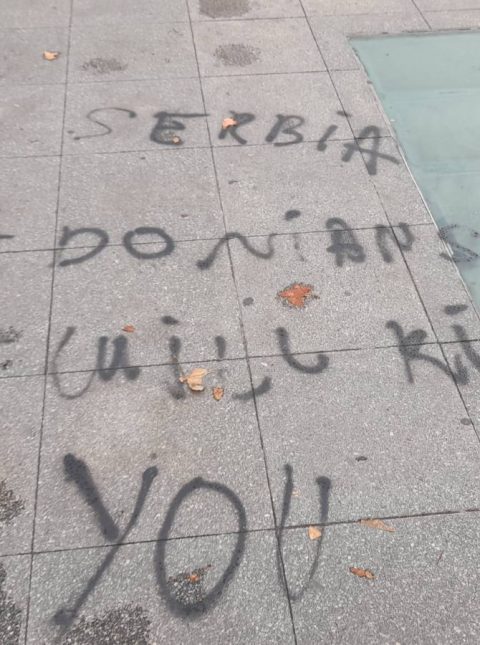 SERBiA
DONiANS
WiLL Ki
YOU